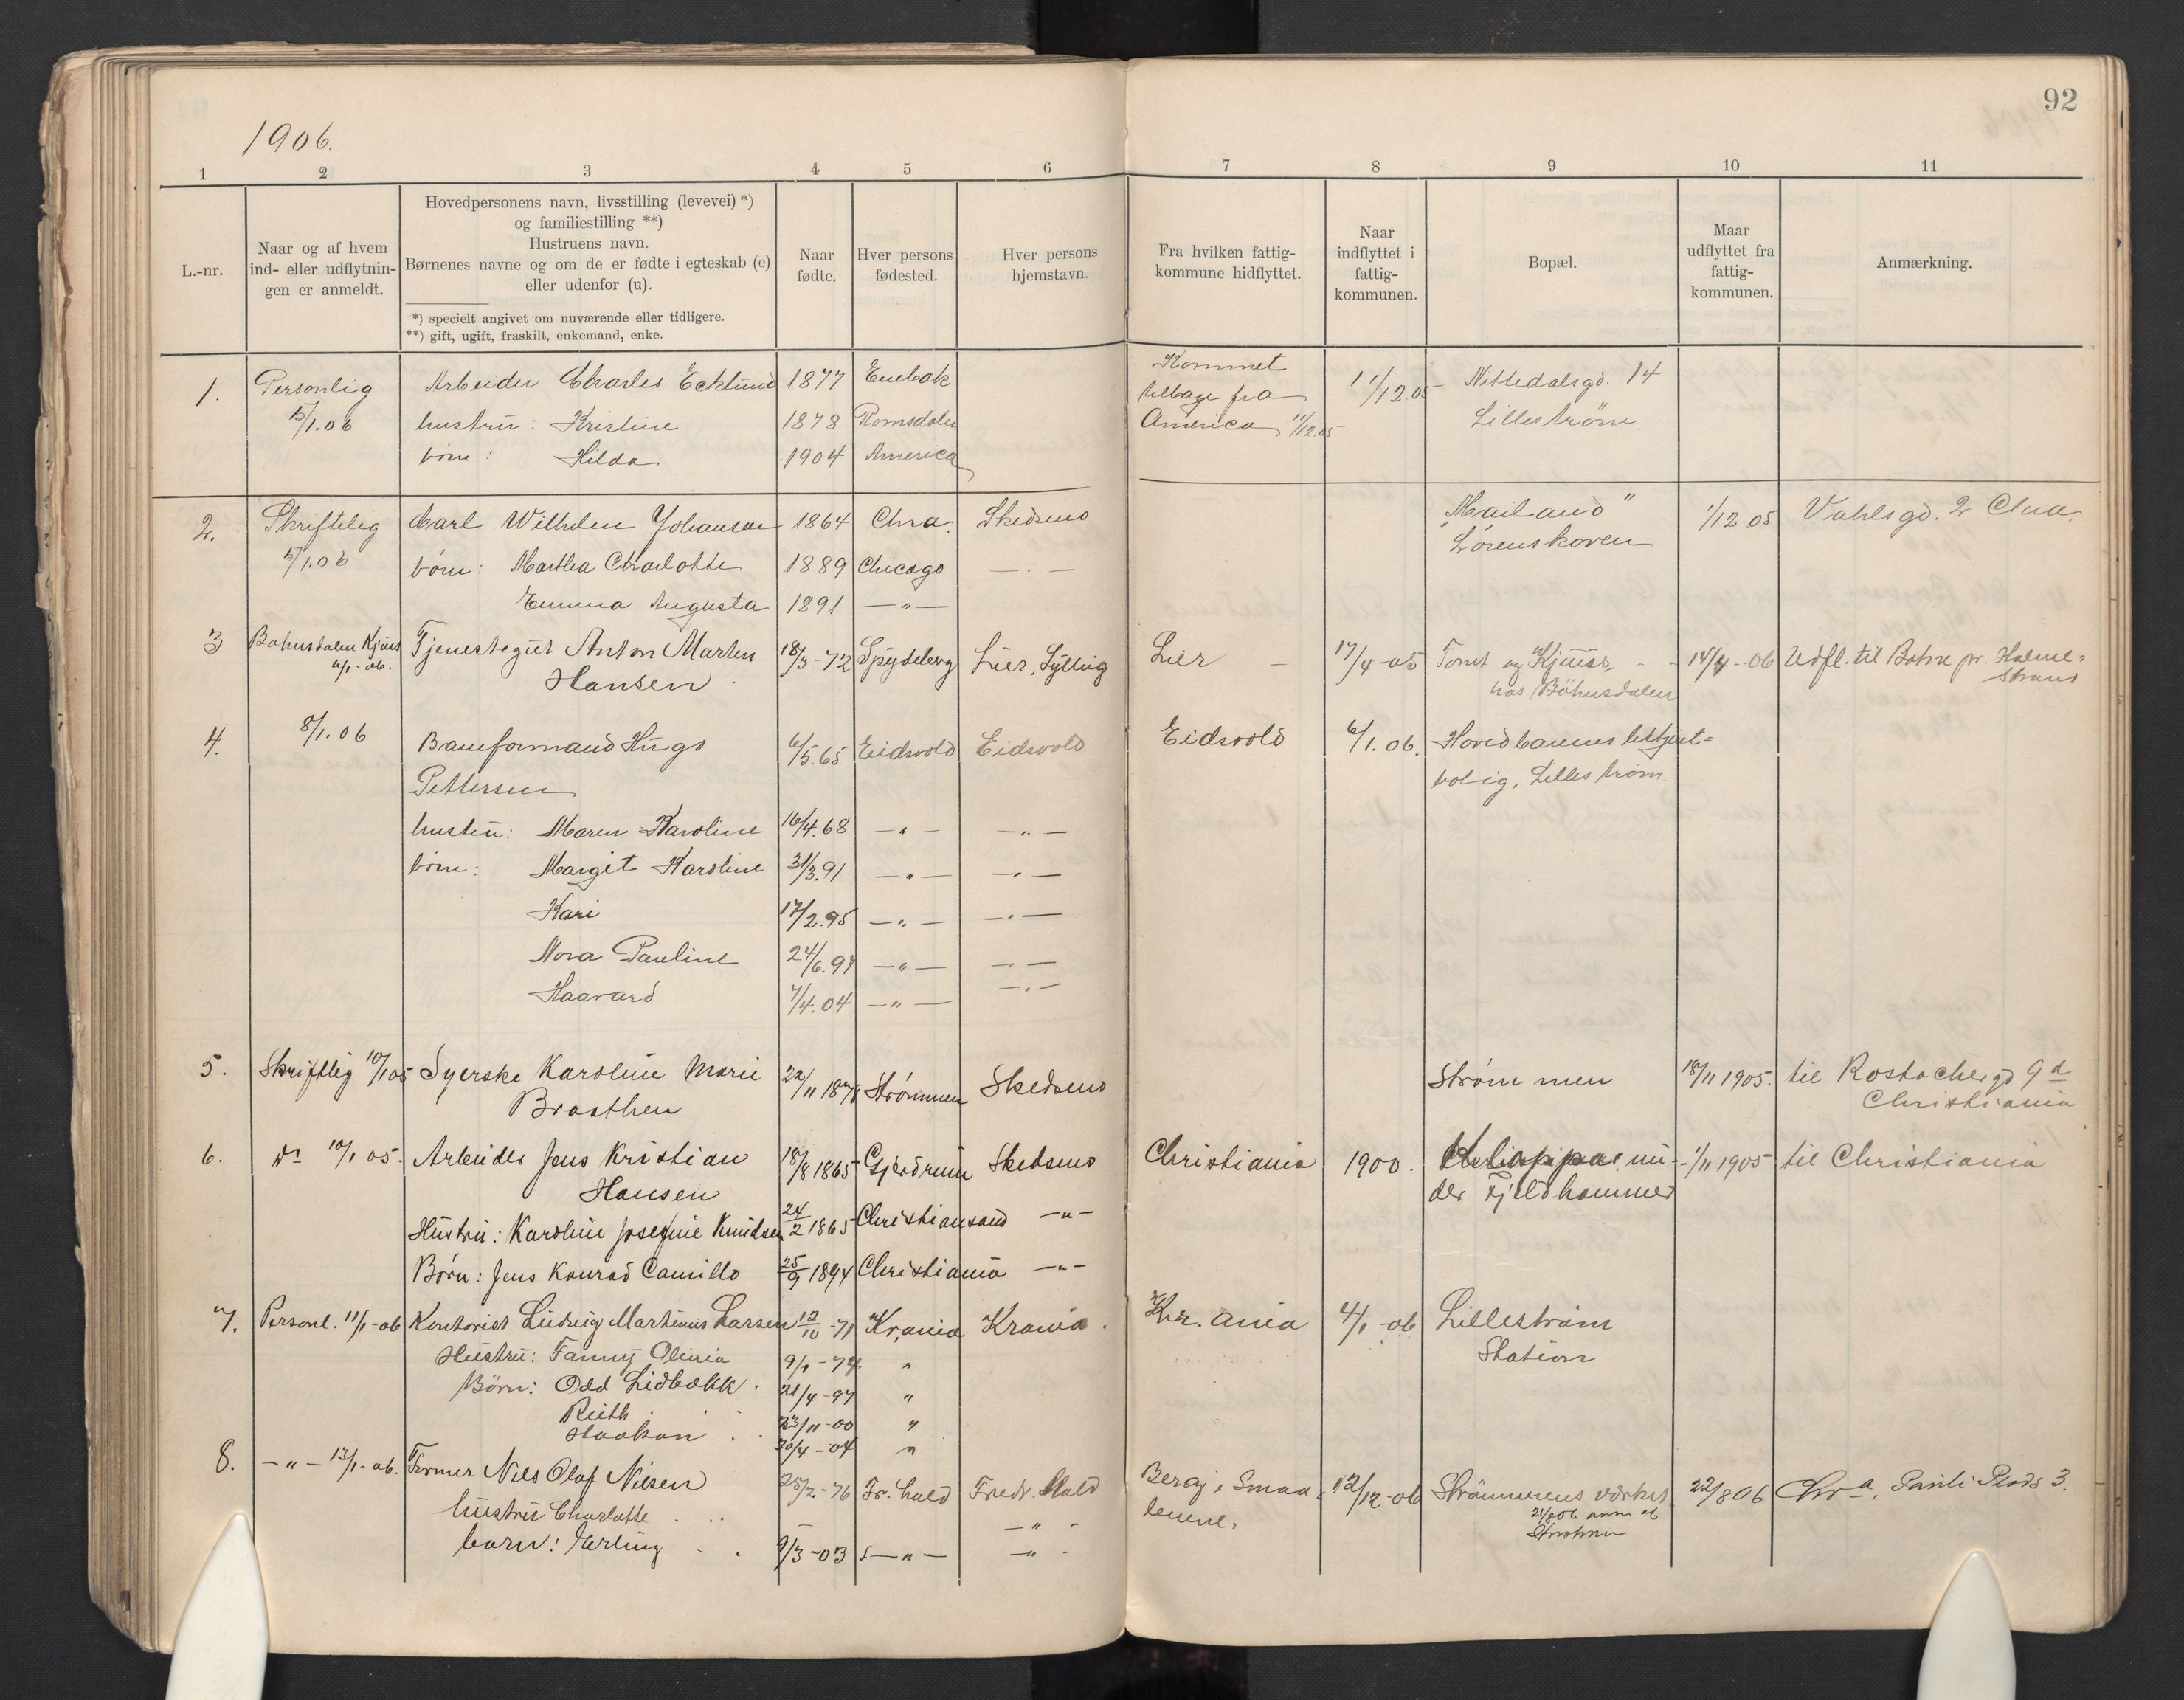 92
1906.
1 2 3 4 5 6 7 8 9 10 11
L.-nr.
Naar og af hvem
ind- eller udflytnin-
gen er anmeldt.
Hovedpersonens navn, livsstilling (levevei) *)
og familiestilling. **)
Hustruens navn.
Børnenes navne og om de er fødte i egteskab (e)
eller udenfor (u).
*) specielt angivet om nuværende eller tidligere.
**) gift, ugift, fraskilt, enkemand, enke.
Naar
fødte.
Hver persons
fødested.
Hver persons
hjemstavn.
Fra hvilken fattig-
kommune hidflyttet.
Naar
indflyttet i
fattig-
kommunen.
Bopæl.
Maar
udflyttet fra
fattig-
kommunen.
Anmærkning.
1. Personlig Arbeider Charles Ecklund 1877 Enebak Kommet 11/12.05 Nittedalsgd. 14
5/1.06 hustru: Kristine 1878 Romsdalen tilbage fra Lillestrøm.
børn: Hilda 1904 America America 11/12.05
2. Skriftelig Carl Wilhelm Johansen 1864 Chra. Skedsmo "Mailand" 1/12 05 Vahlsgd. 2 Chra.
5/1.06 børn: Martha Charlotte 1889 Chicago — . — Lørenskoven
Emma Augusta 1891 — " —
3 Bøhnsdalen Kjuus Tjenestegut Anton Marten 18/3-72 Spydeberg Lier, Sylling Lier – 17/4-05 Tomt og Kjuus 14/4-06 Udfl. til Botne pr. Holme-
4/1-06. Hansen hos Bøhnsdalen strand
4. 8/1.06 Baneformand Hugo 6/5.65 Eidsvold Eidsvold Eidsvold 6/1.06. Hovedbanens betjent-
Pettersen bolig, Lillestrøm.
hustru: Maren Karoline 16/4.68 — " — — " —
børn: Margit Karoline 31/3.91 — " — — " —
Kari 17/2.95 — " — — " —
Nora Pauline 24/6.97 — " — — " —
Haavard 7/4.04 — " — — " —
5. Skriftlig 10/1 05 Syerske Karoline Marie 22/11 1878 Strømmen Skedsmo Strømmen 18/11 1905. til Rostochergd 9d
Braathen Christiania
6. do 10/1 05. Arbeider Jens Kristian 18/8 1865 Gjerdrum Skedsmo Christiania 1900. un- 1/11 1905 til Christiania
Hansen der Fjeldhammer
Hustru: Karoline Josefine Knudsen 24/2 1865 Christiansand — " —
Børn: Jens Konrad Camillo 25/9 1894 Christiania — " —
7. Personl. 11/1-06 Kontorist Ludvig Martinus Larsen 12/10-71 Kr.ania Krania. Kr. ania 4/1-06 Lillestrøm
Hustru: Fanny Olivia 9/1-74 " Station
Børn: Odd Lidbakk. 21/4-97 "
Ruth 23/11-00 "
Haakon 30/4-04 "
8. — " — 13/1-06. Former Nils Olaf Nilsen 25/2-76 Fr. hald Fredr. Hald Berg i Smaa- 12/12-06 Strømmens værkst. 22/8 06 Chra, Pauli Plads 3.
hustru Charlotte — " — lenene. 21/8 06 anm af
barn: Erling 9/3-03 — " — — " —